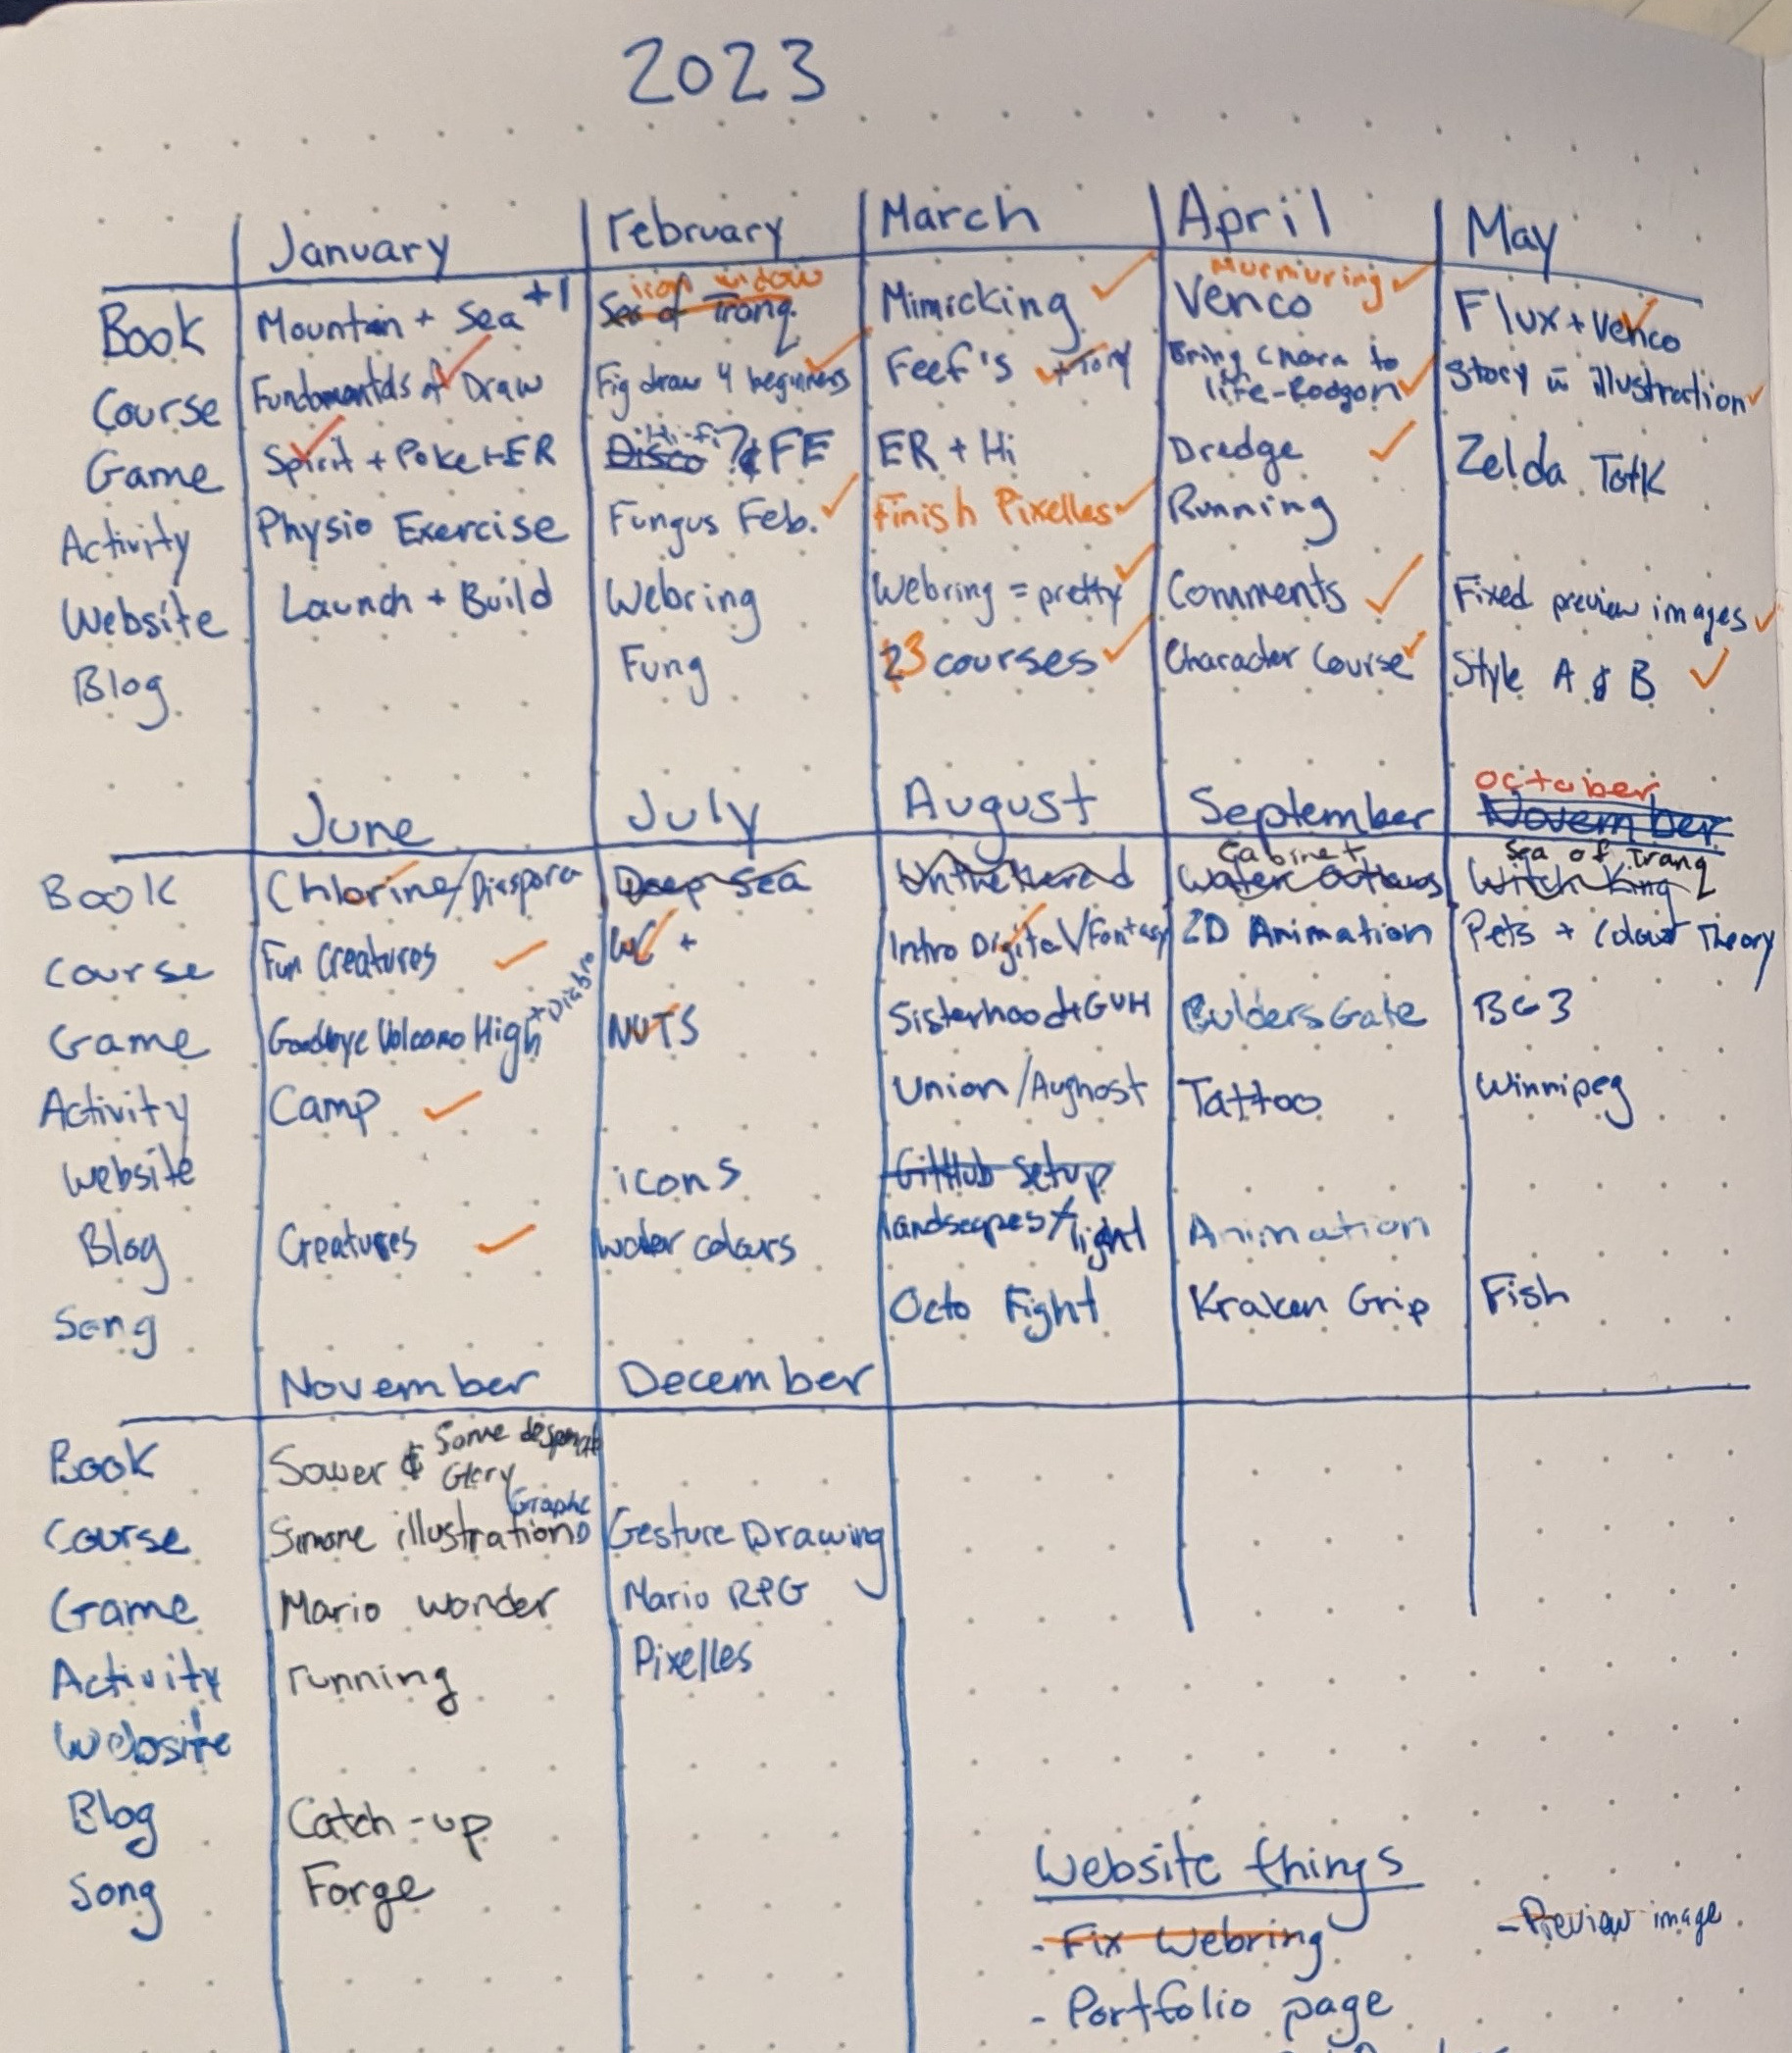 2023
January February March April May
Book Mountain + Sea +1 iron widow Sea of Tranq. Mimicking Murmuring Venco Flux + Venco
Course Fundamentals of Draw Fig draw 4 beginners Feef's + Tony Bring chara to life - Rodgon Story in illustration
Game Spirit + Poke + ER Disco Hi-fi? & FE ER + Hi Dredge Zelda TotK
Activity Physio Exercise Fungus Feb. Finish Pixelles Running
Website Launch + Build Webring Webring = pretty Comments Fixed preview images
Blog Fung 23 courses Character Course Style A & B
June July August September October November
Book Chlorine/Diaspora Deep Sea Untethered Cabinet Water Outlaws Sea of Tranq Witch King
Course Fun Creatures WC + Intro Digital/Fantasy 2D Animation Pets + Colour Theory
Game Goodbye Volcano High + Diablo NUTS Sisterhood + GVH Bulders Gate BG3
Activity Camp Union/Aughost Tattoo Winnipeg
Website icons GitHub Setup
Blog Creatures water colours landscapes + light Animation
Song Octo Fight Kraken Grip Fish
November December
Book Sower & Some desperate Glory
Course Simone illustration Graphic Gesture Drawing
Game Mario wonder Mario RPG
Activity running Pixelles
Website
Blog Catch-up
Song Forge
Website things
- Fix Webring
- Preview image
- Portfolio page